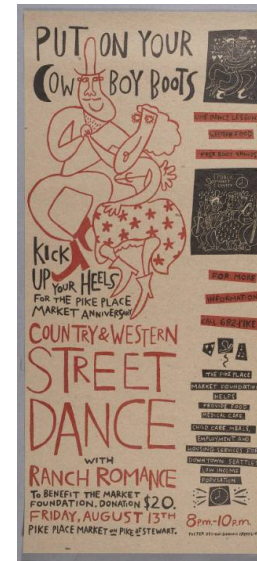 PUT ON YOUR
COWBOY BOOTS
KICK
UP YOUR HEELS
FOR THE PIKE PLACE
MARKET ANNIVERSARY
COUNTRY & WESTERN
STREET
DANCE
WITH
RANCH ROMANCE
TO BENEFIT THE MARKET
FOUNDATION. DONATION $20.
FRIDAY, AUGUST 13TH
PIKE PLACE MARKET ON PIKE AT STEWART.
LINE DANCE LESSONS
WESTERN FOOD
FREE BOOT SHINES
FOR MORE
INFORMATION
CALL 682-PIKE
THE PIKE PLACE
MARKET FOUNDATION
HELPS
PROVIDE FOOD
MEDICAL CARE
CHILD CARE, MEALS,
EMPLOYMENT AND
HOUSING SERVICES FOR
DOWNTOWN SEATTLE'S
LOW INCOME
POPULATION
8PM-10PM.
POSTER DESIGN